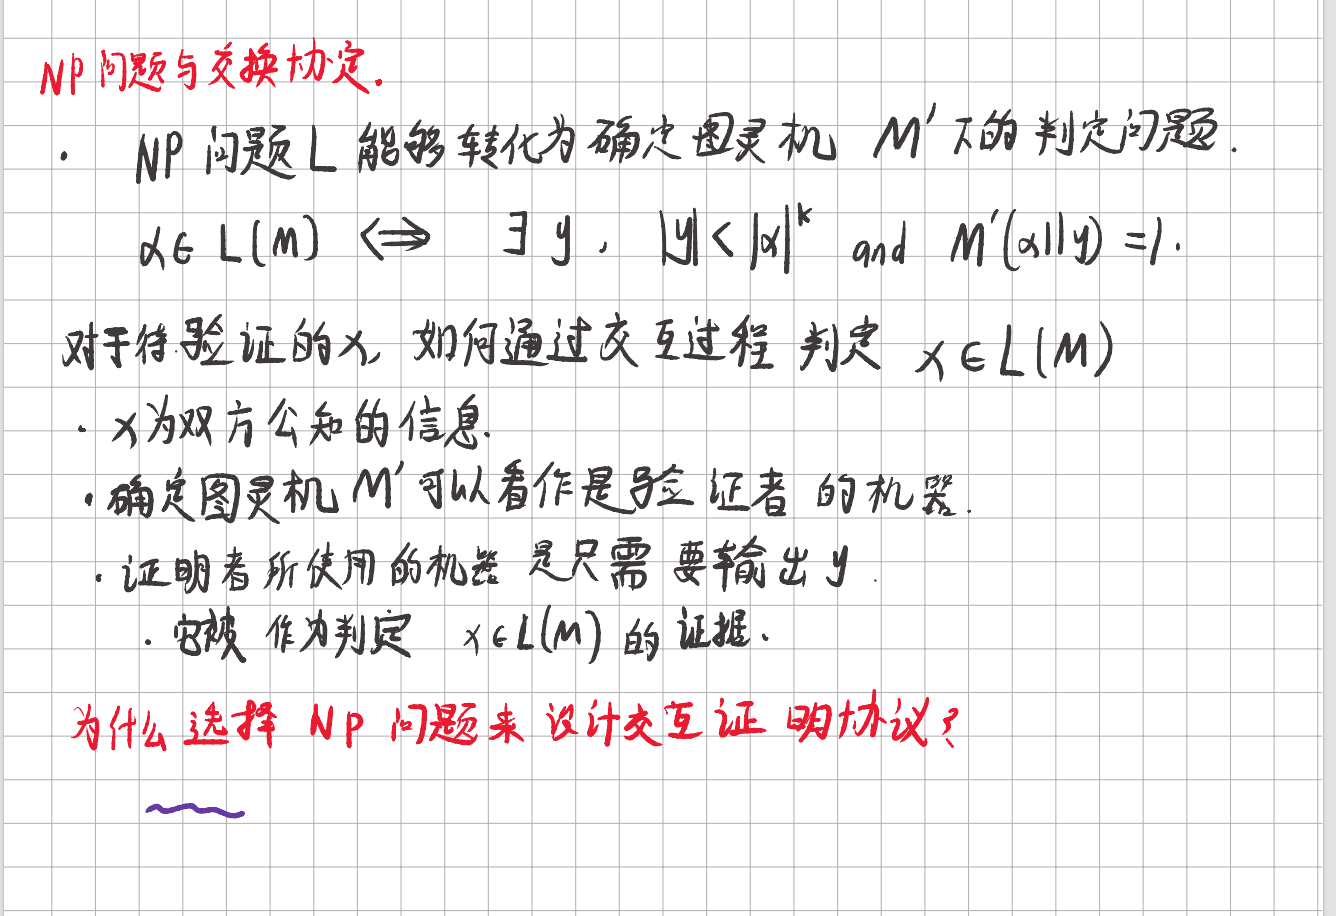 NP问题与交换协定.
· NP问题L能够转化为确定图灵机 M′下的判定问题.
α∈L(M) ⟺ ∃ y, |y|<|α|^k and M′(α||y)=1.
对于待验证的x, 如何通过交互过程 判定 x∈L(M)
· x为双方公知的信息.
· 确定图灵机M′可以看作是验证者的机器.
· 证明者所使用的机器是只需要输出y.
· 它被作为判定 x∈L(M)的证据.
为什么选择NP问题来设计交互证明协议?